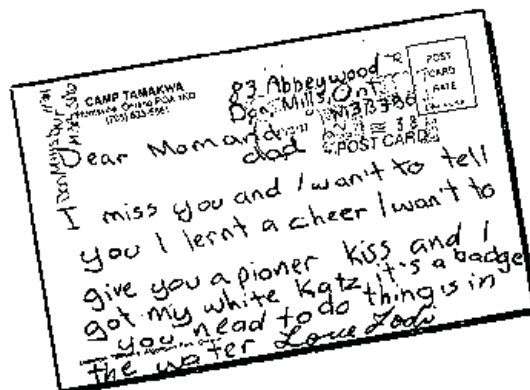 CAMP TAMAKWA
83 Abbeywood
Don Mills, Ont
M3B3B6
POST
CARD
RATE
POST CARD
Dear Mom and
dad
I miss you and I wan't to tell
you I lernt a cheer I wan't to
give you a pioner kiss and I
got my white Katz it's a badge
you nead to do thing is in
the water Love Jodi